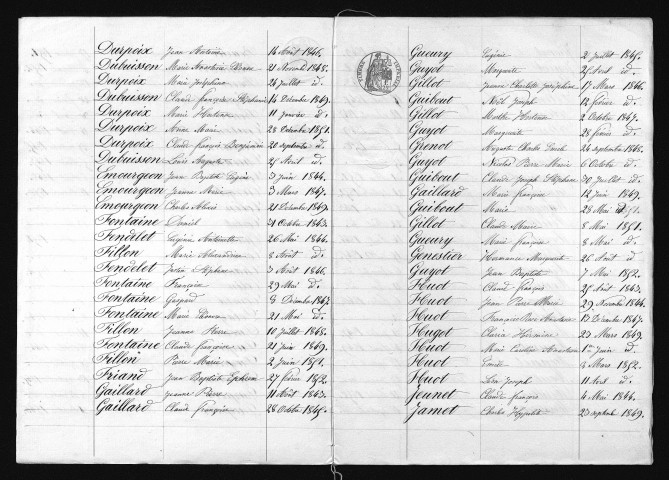 Durpoix Jean Antoine 14 Août 1846.
Dubuisson Marie Anastasie 21 Novemb. 1848.
Durpoix Marie Joséphine 24 Juillet d.
Dubuisson Claude françois Stéphanie 14 Décembre 1849.
Durpoix Marie Hortense 11 Janvier d.
Durpoix Marie 28 Octobre 1851.
Durpoix Claude françois Benjamin 20 septembre d.
Dubuisson Louis Auguste 25 Avril d.
Emourgeon Jean Baptiste Eugène 3 Juin 1844.
Emourgeon Jeanne Marie 3 Mars 1847.
Emourgeon Charles 21 Décembre 1849.
Fontaine Daniel 31 Octobre 1843.
Fondelet Eugénie Antoinette 26 Mai 1844.
Fillon Marie Alexandrine 8 Août d.
Fondelet Justin 3 Août 1846.
Fontaine François 29 Mai d.
Fontaine Gaspard 8 Décembre 1847.
Fontaine Marie 21 Mai d.
Fillon Jeanne Pierre 10 Juillet 1848.
Fontaine Claude françoise 21 Juin 1849.
Fillon Pierre Marie 2 Juin 1851.
Friand Jean Baptiste Ephrem 27 février 1852.
Gaillard Jeanne Pierre 11 Août 1843.
Gaillard Claude françois 28 Octobre 1845.
Gueury Eugénie 2 Juillet 1845.
Guyot Marguerite 25 Avril d.
Gillot Jeanne Charlotte Joséphine 17 Mars 1846.
Guibout Noël Joseph 12 février d.
Gillot Hortense 2 Octobre 1847.
Guyot Marguerite 28 février d.
Grenot Auguste Charles 24 septembre 1848.
Guyot Nicolas Pierre Marie 6 Octobre d.
Guibout Claude Joseph Stéphane 30 Juillet d.
Gaillard Marie françoise 12 Juin 1849.
Guibout Marie 28 Mai 1851.
Gillot Claude Marie 8 Mai 1851.
Gueury Marie françoise 8 Mai d.
Genestier Marguerite 26 Août d.
Guyot Jean Baptiste 7 Mai 1852.
Huot Claude françois 25 Août 1843.
Huot Jean Pierre Marie 29 Novembre 1844.
Huot Françoise Anastasie 13 Décembre 1847.
Hugot Claire Hermine 27 Mars 1849.
Huot Marie Caroline Anastasie 1er Juin d.
Huot Emile 8 Mars 1852.
Huot Joseph 11 Avril d.
Jeunet Claude françois 4 Mai 1844.
Jamet Charles Hippolite 23 septembre 1849.